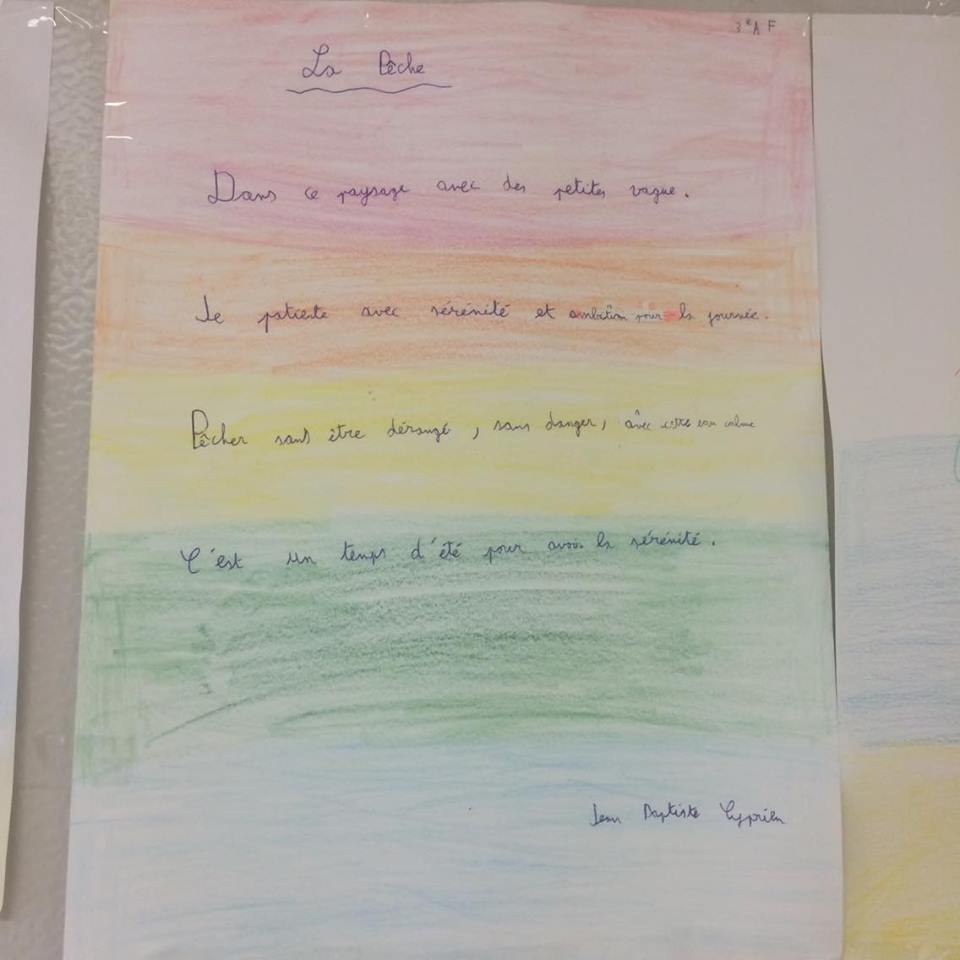 3e A F
La Pêche
Dans ce paysage avec des petites vague.
Je patiente avec sérénité et ambition pour la journée.
Pêcher sans être dérangé, sans danger, avec cette eau calme
C'est un temps d'été pour avoir la sérénité.
Jean Baptiste Cyprien